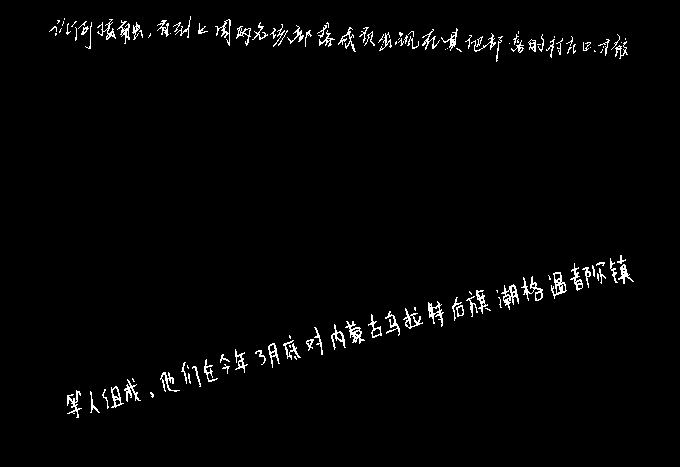 任何接触,直到上周两名该部落成员出现在其他部落的村庄口,才能
等人组成。他们在今年3月底对内蒙古乌拉特后旗潮格温都尔镇